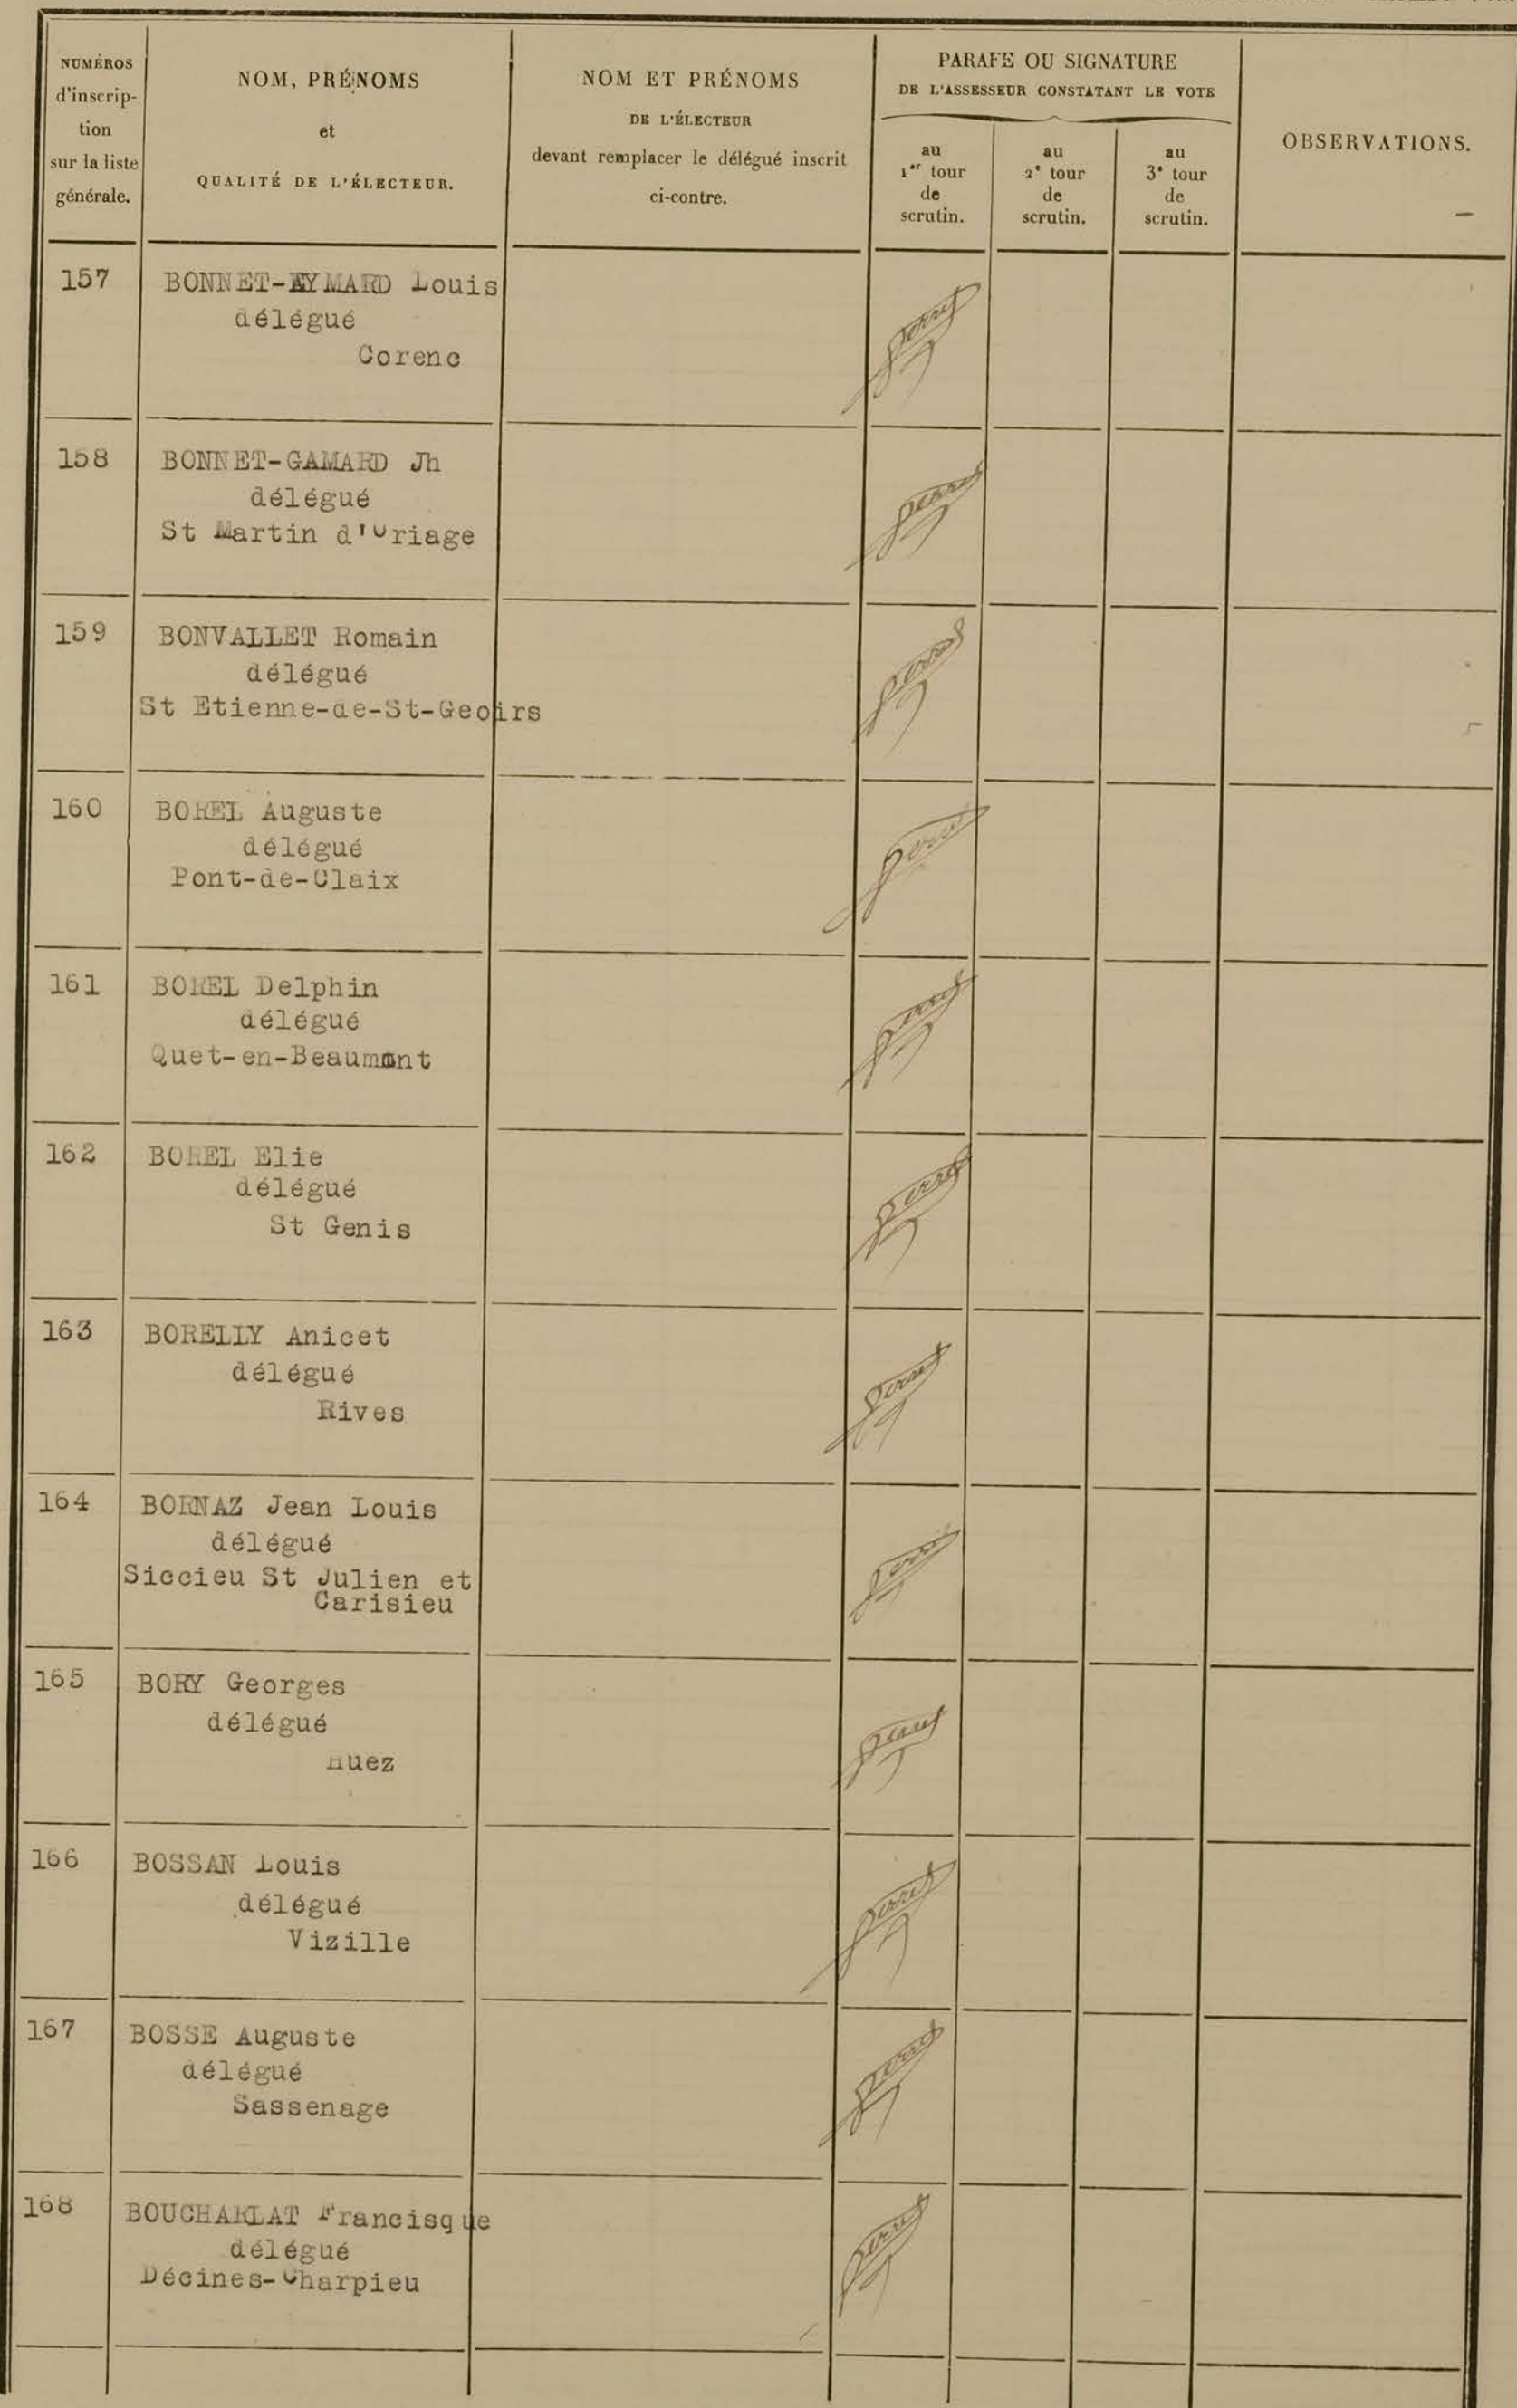 NUMÉROS
d'inscrip-
tion
sur la liste
générale.
NOM, PRÉNOMS
et
QUALITÉ DE L'ÉLECTEUR.
NOM ET PRÉNOMS
DE L'ÉLECTEUR
devant remplacer le délégué inscrit
ci-contre.
PARAFE OU SIGNATURE
DE L'ASSESSEUR CONSTATANT LE VOTE
au
1er tour
de
scrutin.
au
2e tour
de
scrutin.
au
3e tour
de
scrutin.
OBSERVATIONS.
157 BONNET-EYMARD Louis
délégué
Corenc
158 BONNET-GAMARD Jh
délégué
St Martin d'Uriage
159 BONVALLET Romain
délégué
St Etienne-de-St-Geoirs
160 BOREL Auguste
délégué
Pont-de-Claix
161 BOREL Delphin
délégué
Quet-en-Beaumont
162 BOREL Elie
délégué
St Genis
163 BORELLY Anicet
délégué
Rives
164 BORNAZ Jean Louis
délégué
Siccieu St Julien et
Carisieu
165 BORY Georges
délégué
Huez
166 BOSSAN Louis
délégué
Vizille
167 BOSSE Auguste
délégué
Sassenage
168 BOUCHARLAT Francisque
délégué
Décines-Charpieu